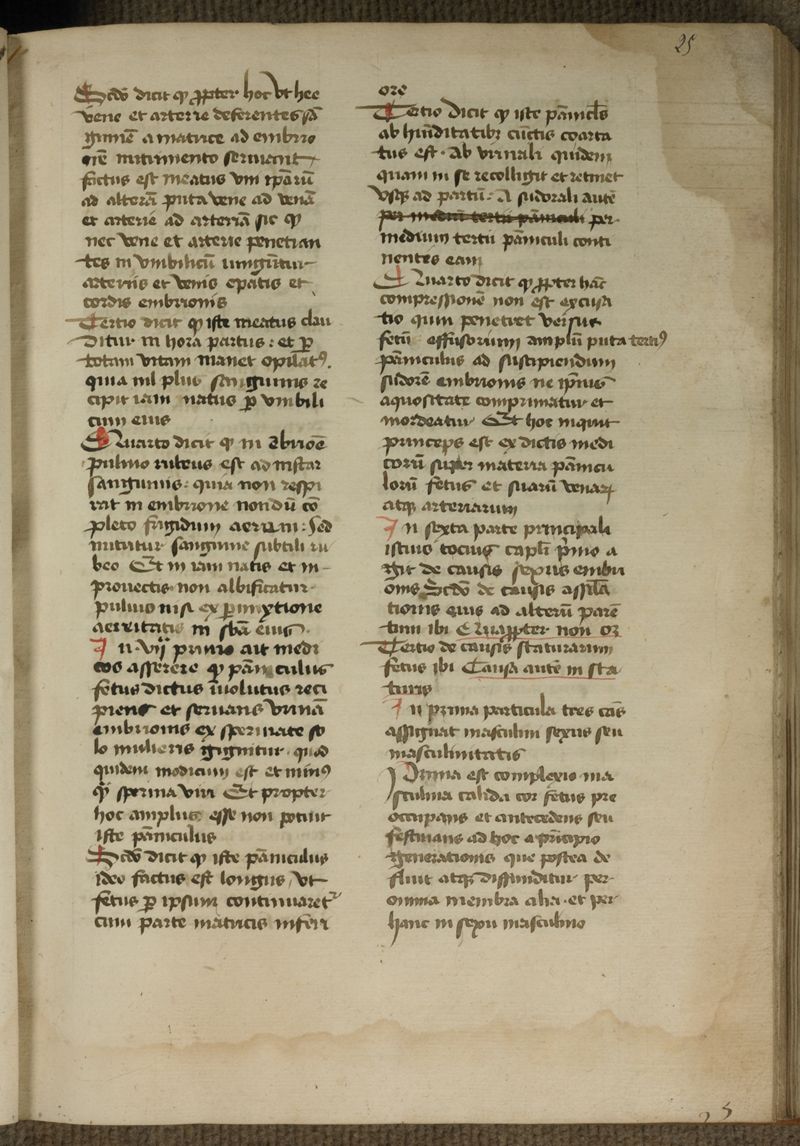 25
Scďo dicit ꝙ ꝓpter hoc vt hee
vene et arterie deferentes sã
guinẽ a matrice ad embrio
nutrimento seruiunt
factus est meatus vni ꝑariũ
ad alterã puta vene ad venã
et arterie ad arteriã sic ꝙ
nec vene et arterie penetran
tes in vmbilicũ iungũtur
arteriis et venis epatis et
cordis embrionis
Tertio dicit ꝙ iste meatus clau
ditur in hora partus : et ꝑ
totam vitam manet opilatꝰ.
quia nil plus sanguinis re
cipit iam natus ꝑ vmbili
cum eius
Quarto dicit ꝙ in ẽbrioẽ
pulmo rubeus est ad instar
sanguinis : quia non respi
rat in embrione nondũ cõ
pleto frigidum aerum : sed
nutritur sanguine subtili ru
beo Et in iam natis et in
prouectis non albificatur
pulmo nisi ex ꝑmixtione
aereitatis in sbã eius.
In vij primo ait medi
cos asserere ꝙ pãniculus
fetus dictus inuolutus reci
piens et seruans vrinã
embrionis ex spermate so
lo mulieris gignitur. quod
quidem modicum est et minꝰ
ꝙ̃ sperma viri Et propter
hoc amplius esse non potuit
iste pãniculus
Scďo dicit ꝙ iste pãniculus
ideo factus est longus, vt
fetus ꝑ ipsum continuaretᷣ
cum parte matricis inferi
ore
Tertio dicit ꝙ iste pãniclũs
ab hũiditatibꝫ cũctis coarta
tus est. Ab vrinali quidem
quam in se recolligit et retinet
vsqꝫ ad partũ : A sudorali autẽ
per mediũ tertii pãniculi per
medium tertii pãniculi conti
nentes eam
Quarto dicit ꝙ ꝓpter hãc
compressionẽ non est excusa
tio quin penetret versus
fetũ effusorium amplũ puta tertiꝰ
pãniculus ad suscipiendum
sudorẽ embrionis ne ip̃ius
aquositate comprimatur et
mordeatur Et hoc inquit
princeps est ex dictis medi
corũ super materia pãnicu
lorũ fetus et suarũ venaꝝ
atqꝫ arteriarum
In sexta parte principali
istius tocius capl̃i p̃mo a
git de causis sexus embri
onis Scďo de causis assil̃a
tionis eius ad alterũ parẽ
tum ibi Quapropter non oꝫ
Tertio de causis staturarum
fetus ibi Causa autẽ in sta
turis
In prima particula tres cãs
assignat masculini sexus seu
masculinitatis
Prima est complexio ma
sculina calida cor fetus pre
occupans et antecedens seu
festinans ad hoc a principio
generationis que postea de
fluit atqꝫ diffunditur per
omnia membra alia. et per
hanc in sexu masculino